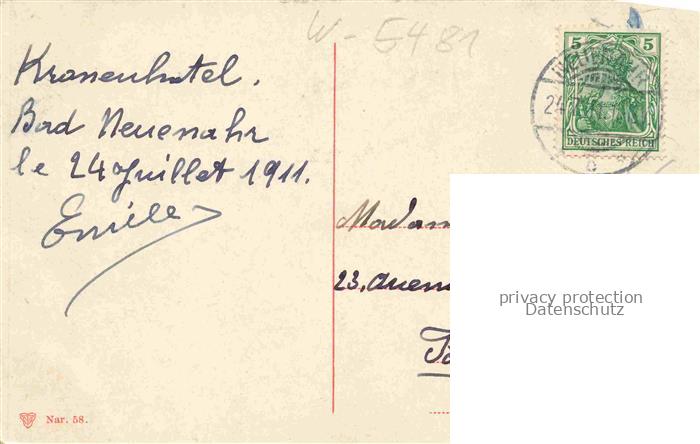 W-5481
Kronenhotel.
Bad Neuenahr
le 24 Juillet 1911.
Emile
5 5
DEUTSCHES REICH
24.7
b
Madam
23, Avenu
privacy protection
Datenschutz
Nar. 58.